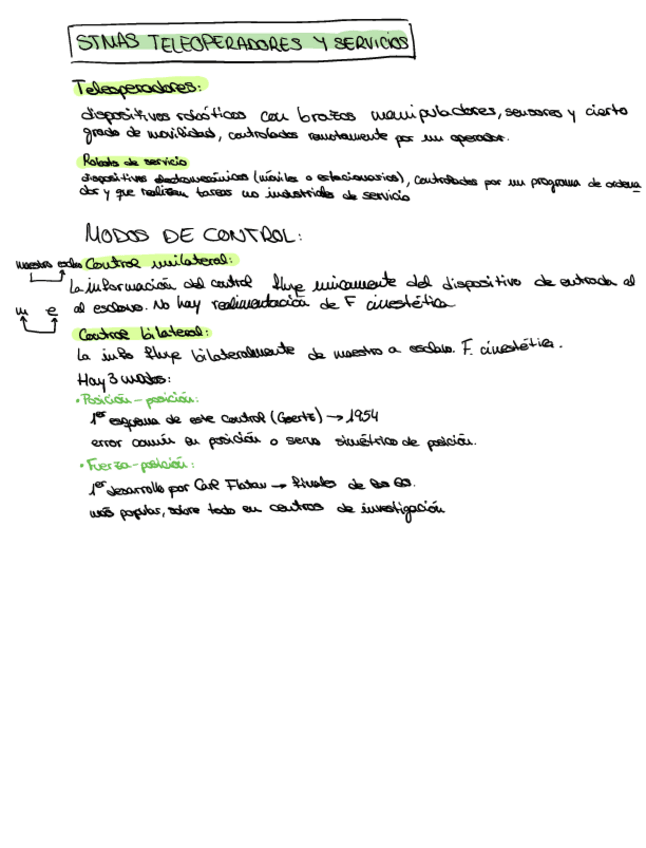 STMAS TELEOPERADORES Y SERVICIOS
Teleoperadores:
dispositivos robóticos con brazos manipuladores, sensores y cierto
grado de movilidad, controlados remotamente por un operador.
Robots de servicio
dispositivos electromecánicos (móviles o estacionarios), controlados por un programa de ordena
dor y que realizan tareas no industriales de servicio
MODOS DE CONTROL:
maestro esclavo Control unilateral:
La información del control fluye unicamente del dispositivo de entrada al
al esclavo. No hay realimentación de F cinestética
m e
Control bilateral:
La info fluye bilateralmente de maestro a esclavo. F. cinestética.
Hay 3 modos:
• Posición - posición:
1er esquema de este control (Goertz) → 1954
error común en posición o servo simétrico de posición.
• Fuerza - posición:
1er desarrollo por Carl Flatau → finales de los 60.
más popular, sobre todo en centros de investigación